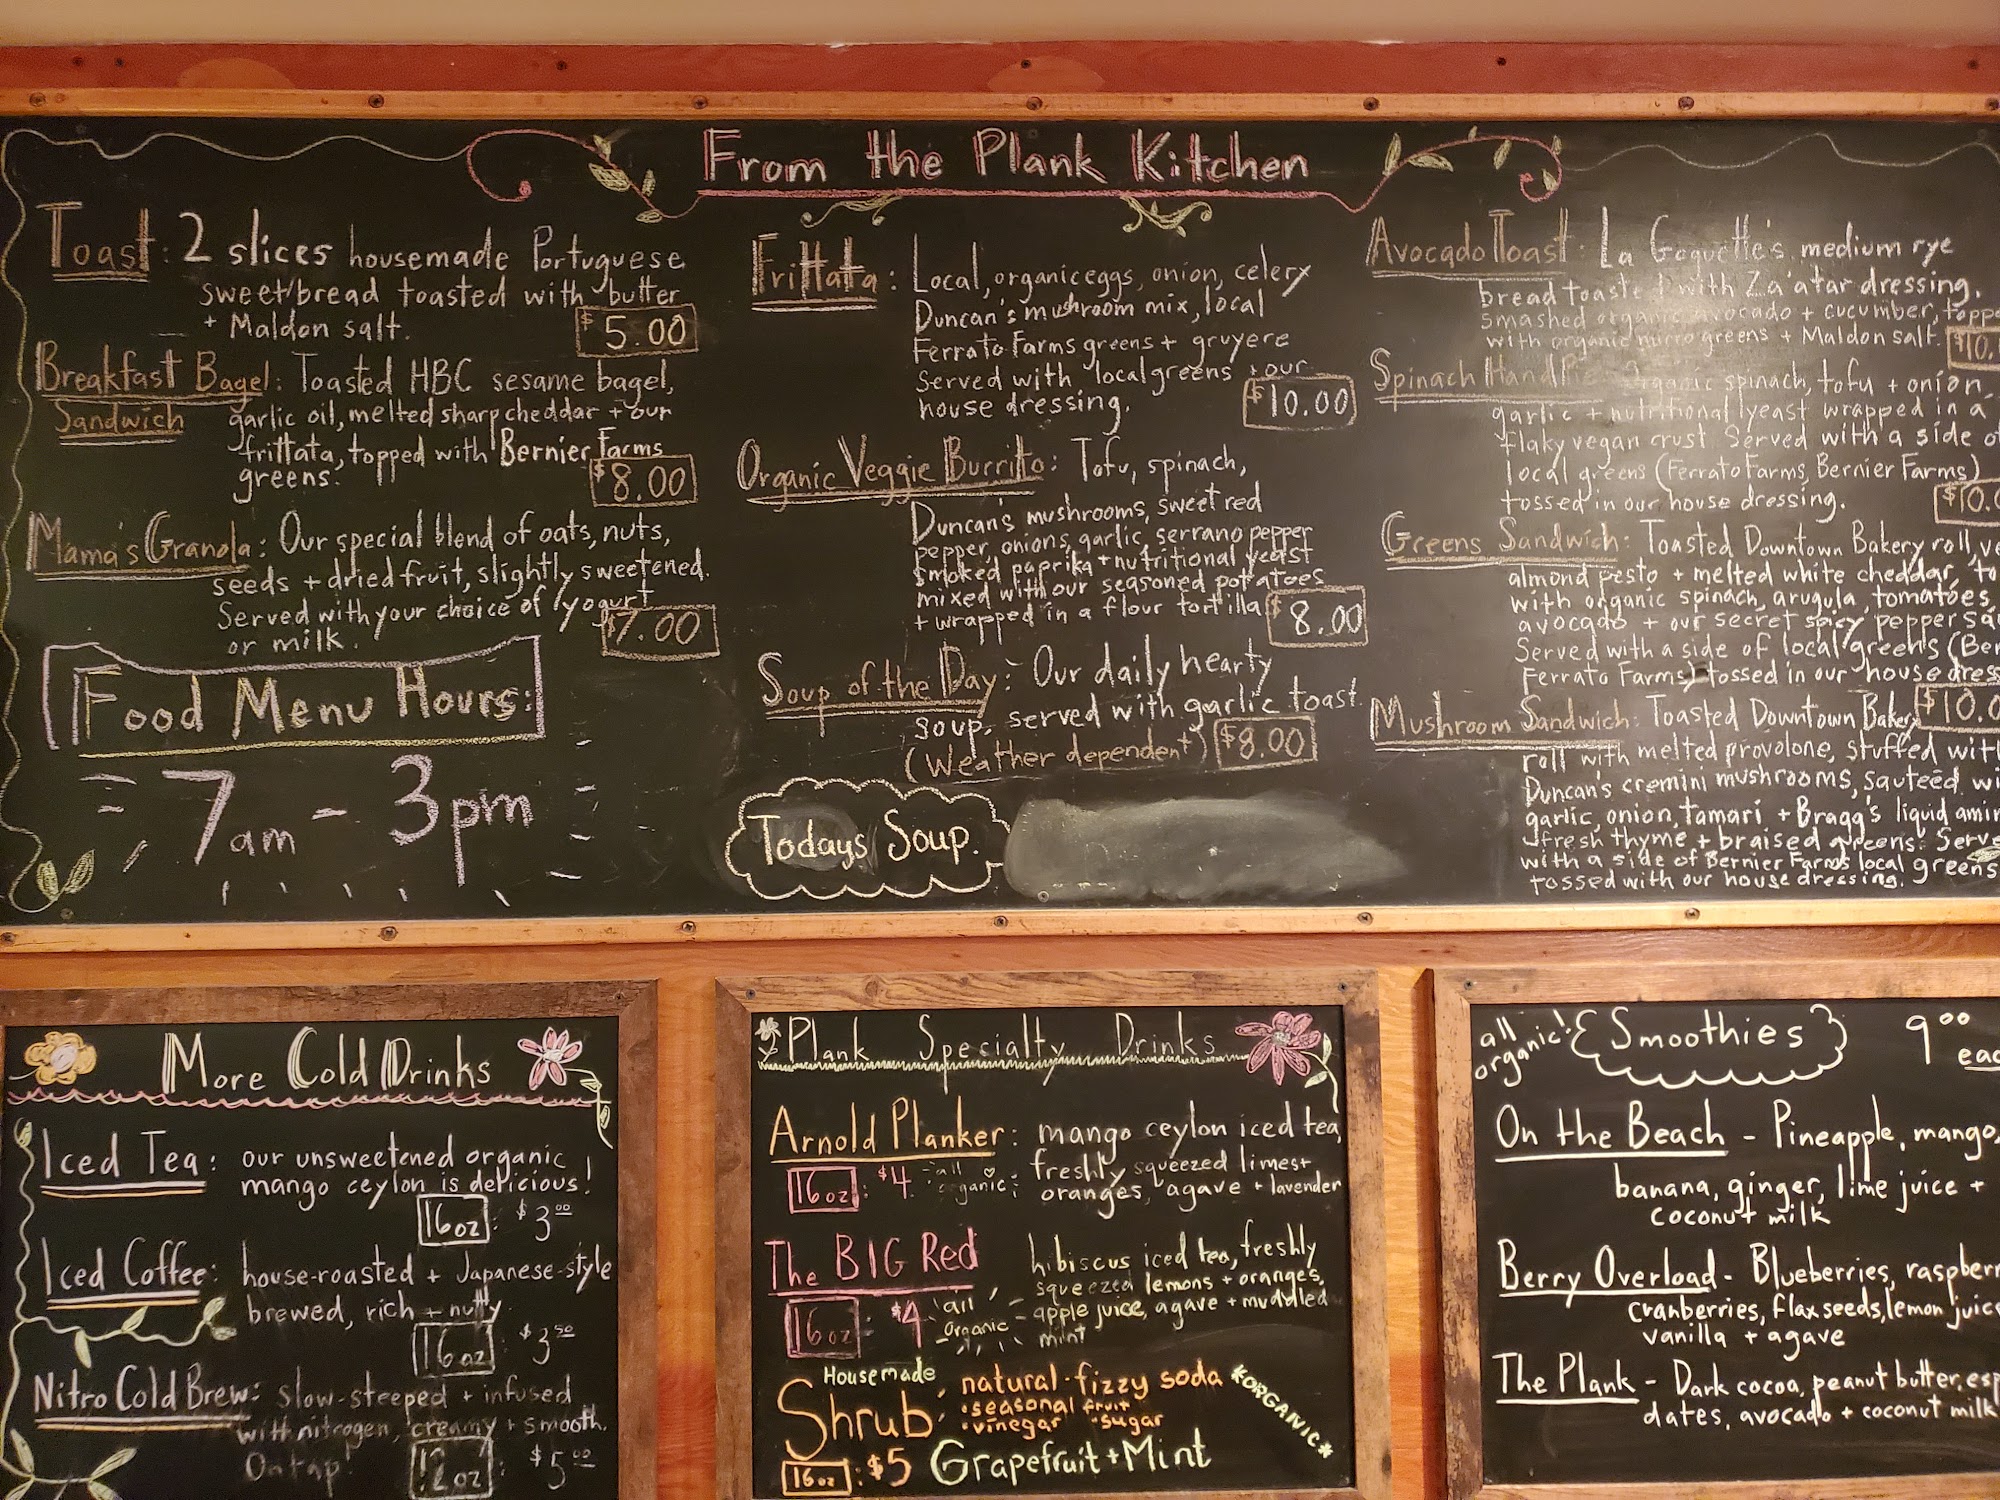 From the Plank Kitchen
Toast: 2 slices housemade Portuguese
sweetbread toasted with butter
+ Maldon salt.
$5.00
Breakfast Bagel: Toasted HBC sesame bagel,
Sandwich garlic oil, melted sharp cheddar + our
frittata, topped with Bernier Farms
greens.
$8.00
Mama's Granola: Our special blend of oats, nuts,
seeds + dried fruit, slightly sweetened.
Served with your choice of yogurt
or milk.
$7.00
Food Menu Hours:
7am - 3pm
Frittata: Local, organic eggs, onion, celery
Duncan's mushroom mix, local
Ferrato Farms greens + gruyere
Served with local greens + our
house dressing.
$10.00
Organic Veggie Burrito: Tofu, spinach,
Duncan's mushrooms, sweet red
pepper, onions, garlic, serrano pepper
smoked paprika + nutritional yeast
mixed with our seasoned potatoes
+ wrapped in a flour tortilla
$8.00
Soup of the Day: Our daily hearty
soup, served with garlic toast.
(Weather dependent) $8.00
Todays Soup.
Avocado Toast: La Goguette's, medium rye
bread toasted with Za'atar dressing,
smashed organic avocado + cucumber, toppe
with organic microgreens + Maldon salt.
$10.
Spinach Hand Pie: Organic spinach, tofu + onion,
garlic + nutritional yeast wrapped in a
flaky vegan crust. Served with a side of
local greens (Ferrato Farms, Bernier Farms)
tossed in our house dressing.
$10.0
Greens Sandwich: Toasted Downtown Bakery roll, ve
almond pesto + melted white cheddar, to
with organic spinach, arugula, tomatoes,
avocado + our secret spicy pepper sau
Served with a side of local greens (Ber
Ferrato Farms) tossed in our house dress
$10.0
Mushroom Sandwich: Toasted Downtown Bakery
roll with melted provolone, stuffed with
Duncan's cremini mushrooms, sauteed wi
garlic, onion, tamari + Bragg's liquid amin
fresh thyme + braised greens. Serve
with a side of Bernier Farms local greens
tossed with our house dressing.
More Cold Drinks
Iced Tea: our unsweetened organic
mango ceylon is delicious!
16oz: $3.00
Iced Coffee: house-roasted + Japanese-style
brewed, rich + nutty.
16oz: $3.50
Nitro Cold Brew: slow-steeped + infused
with nitrogen, creamy + smooth.
On tap!
12oz: $5.00
Plank Specialty Drinks
Arnold Planker: mango ceylon iced tea,
freshly squeezed limes +
oranges, agave + lavender
16oz: $4 all organic
The BIG Red hibiscus iced tea, freshly
squeezed lemons + oranges,
apple juice, agave + muddled
mint
16oz: $4 all organic
Housemade
Shrub natural·fizzy soda
·seasonal fruit
·vinegar ·sugar
*ORGANIC*
16oz: $5 Grapefruit + Mint
all organic! Smoothies 9.00 eac
On the Beach - Pineapple, mango,
banana, ginger, lime juice +
coconut milk
Berry Overload - Blueberries, raspberr
cranberries, flaxseeds, lemon juice
vanilla + agave
The Plank - Dark cocoa, peanut butter, esp
dates, avocado + coconut milk